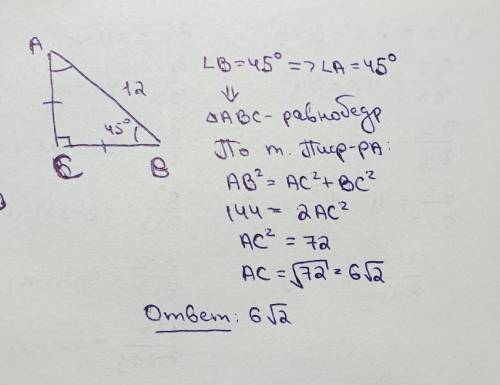 A
12
45°
C
B
∠B = 45° => ∠A = 45°
⇓
△ABC - равнобедр
По т. Пиф-ра:
AB² = AC² + BC²
144 = 2AC²
AC² = 72
AC = √72 = 6√2
Ответ: 6√2